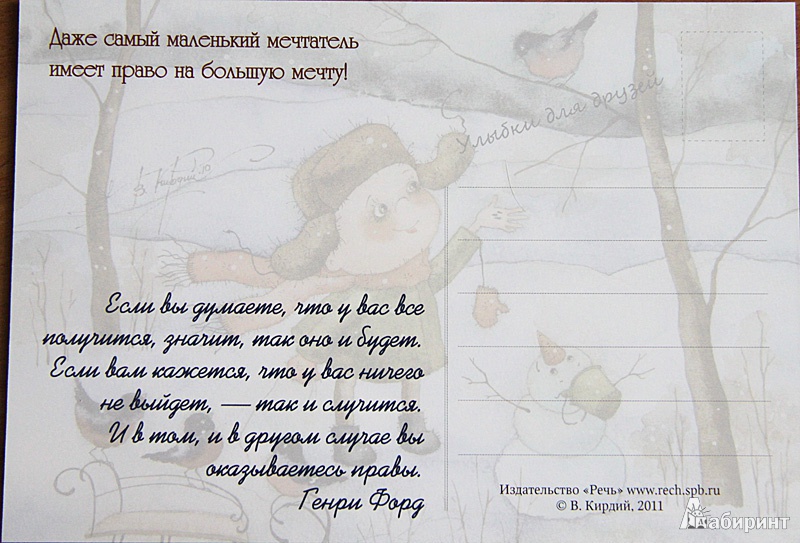 Даже самый маленький мечтатель
имеет право на большую мечту!
Улыбки для друзей
Если вы думаете, что у вас все
получится, значит, так оно и будет.
Если вам кажется, что у вас ничего
не выйдет, — так и случится.
И в том, и в другом случае вы
оказываетесь правы.
Генри Форд
Издательство «Речь» www.rech.spb.ru
© В. Кирдий, 2011
Лабиринт